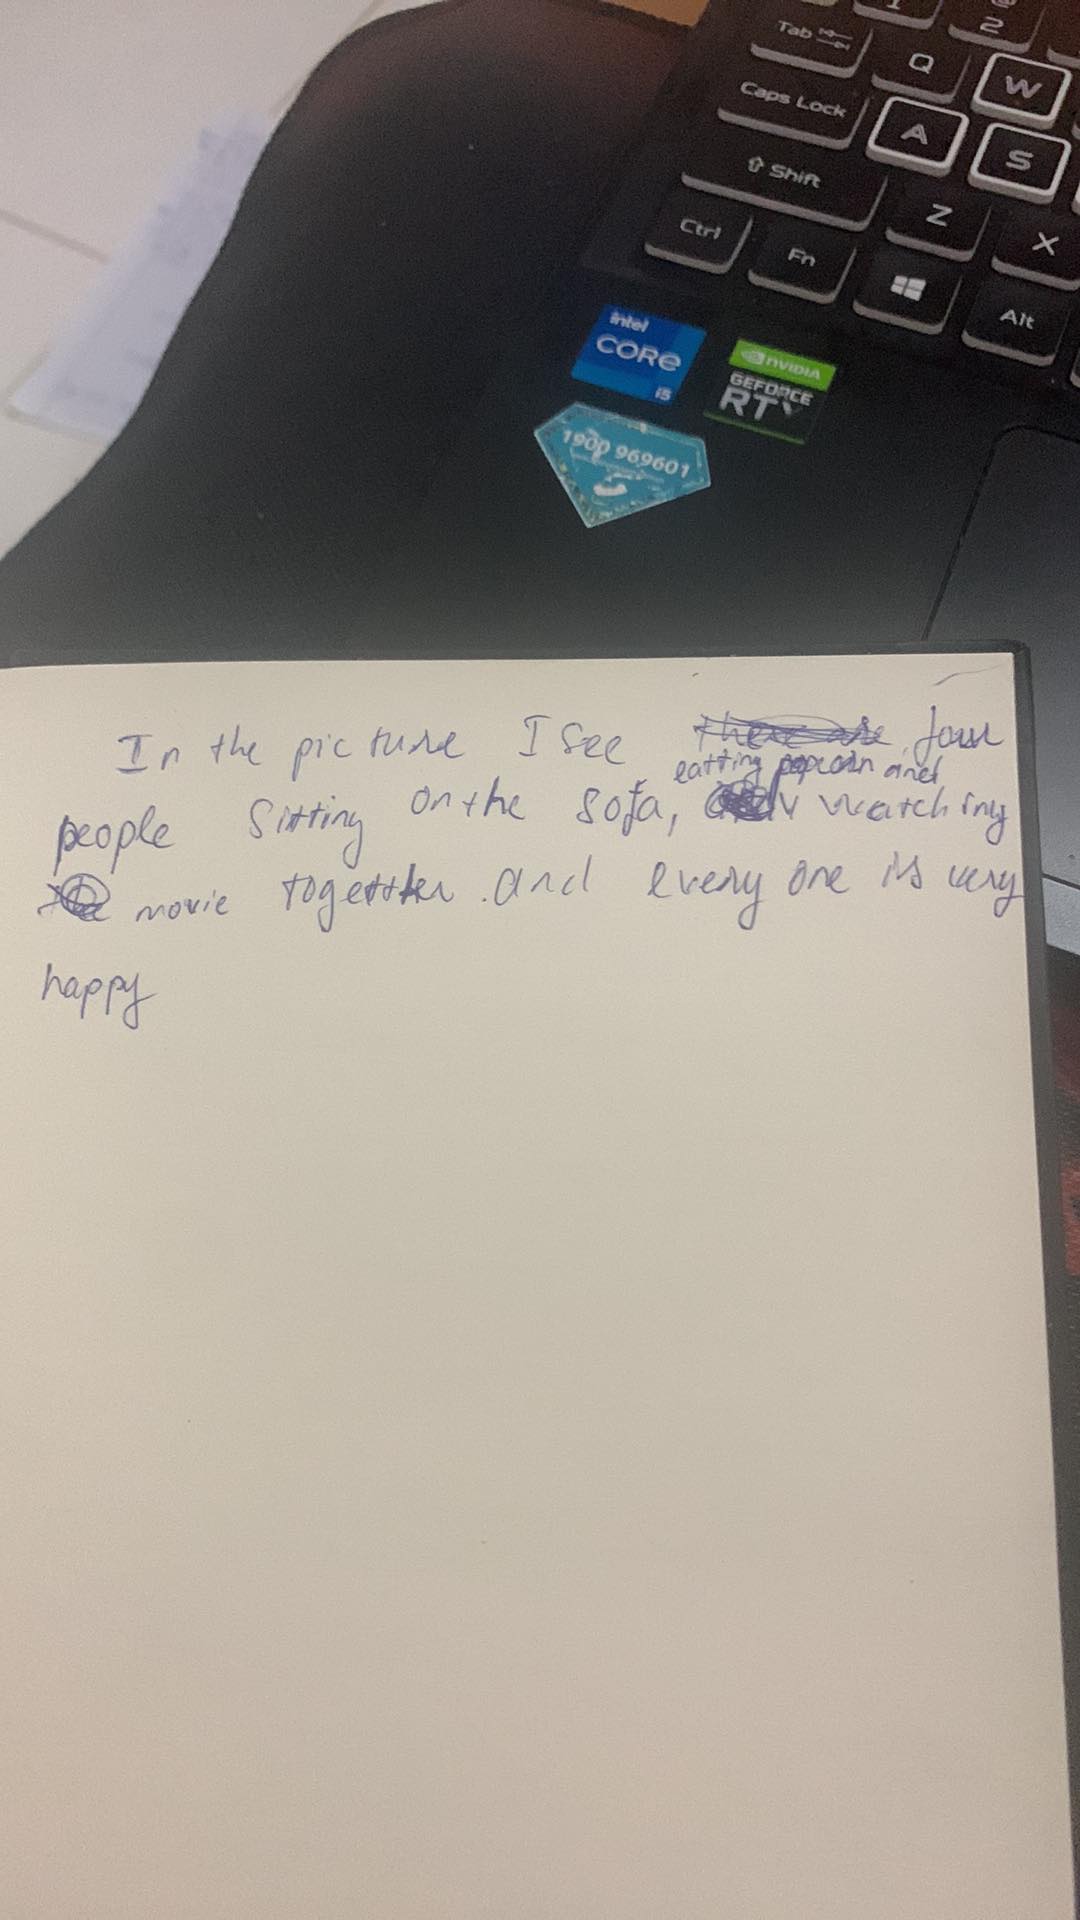 1
2
Tab
Q
W
Caps Lock
A
S
Shift
Z
X
Ctrl
Fn
Alt
intel
CORE
i5
NVIDIA
GEFORCE
RTX
1900 969601
In the picture I see four
eatting popcorn and
people sitting on the sofa, watching
movie togetther .and every one is very
happy